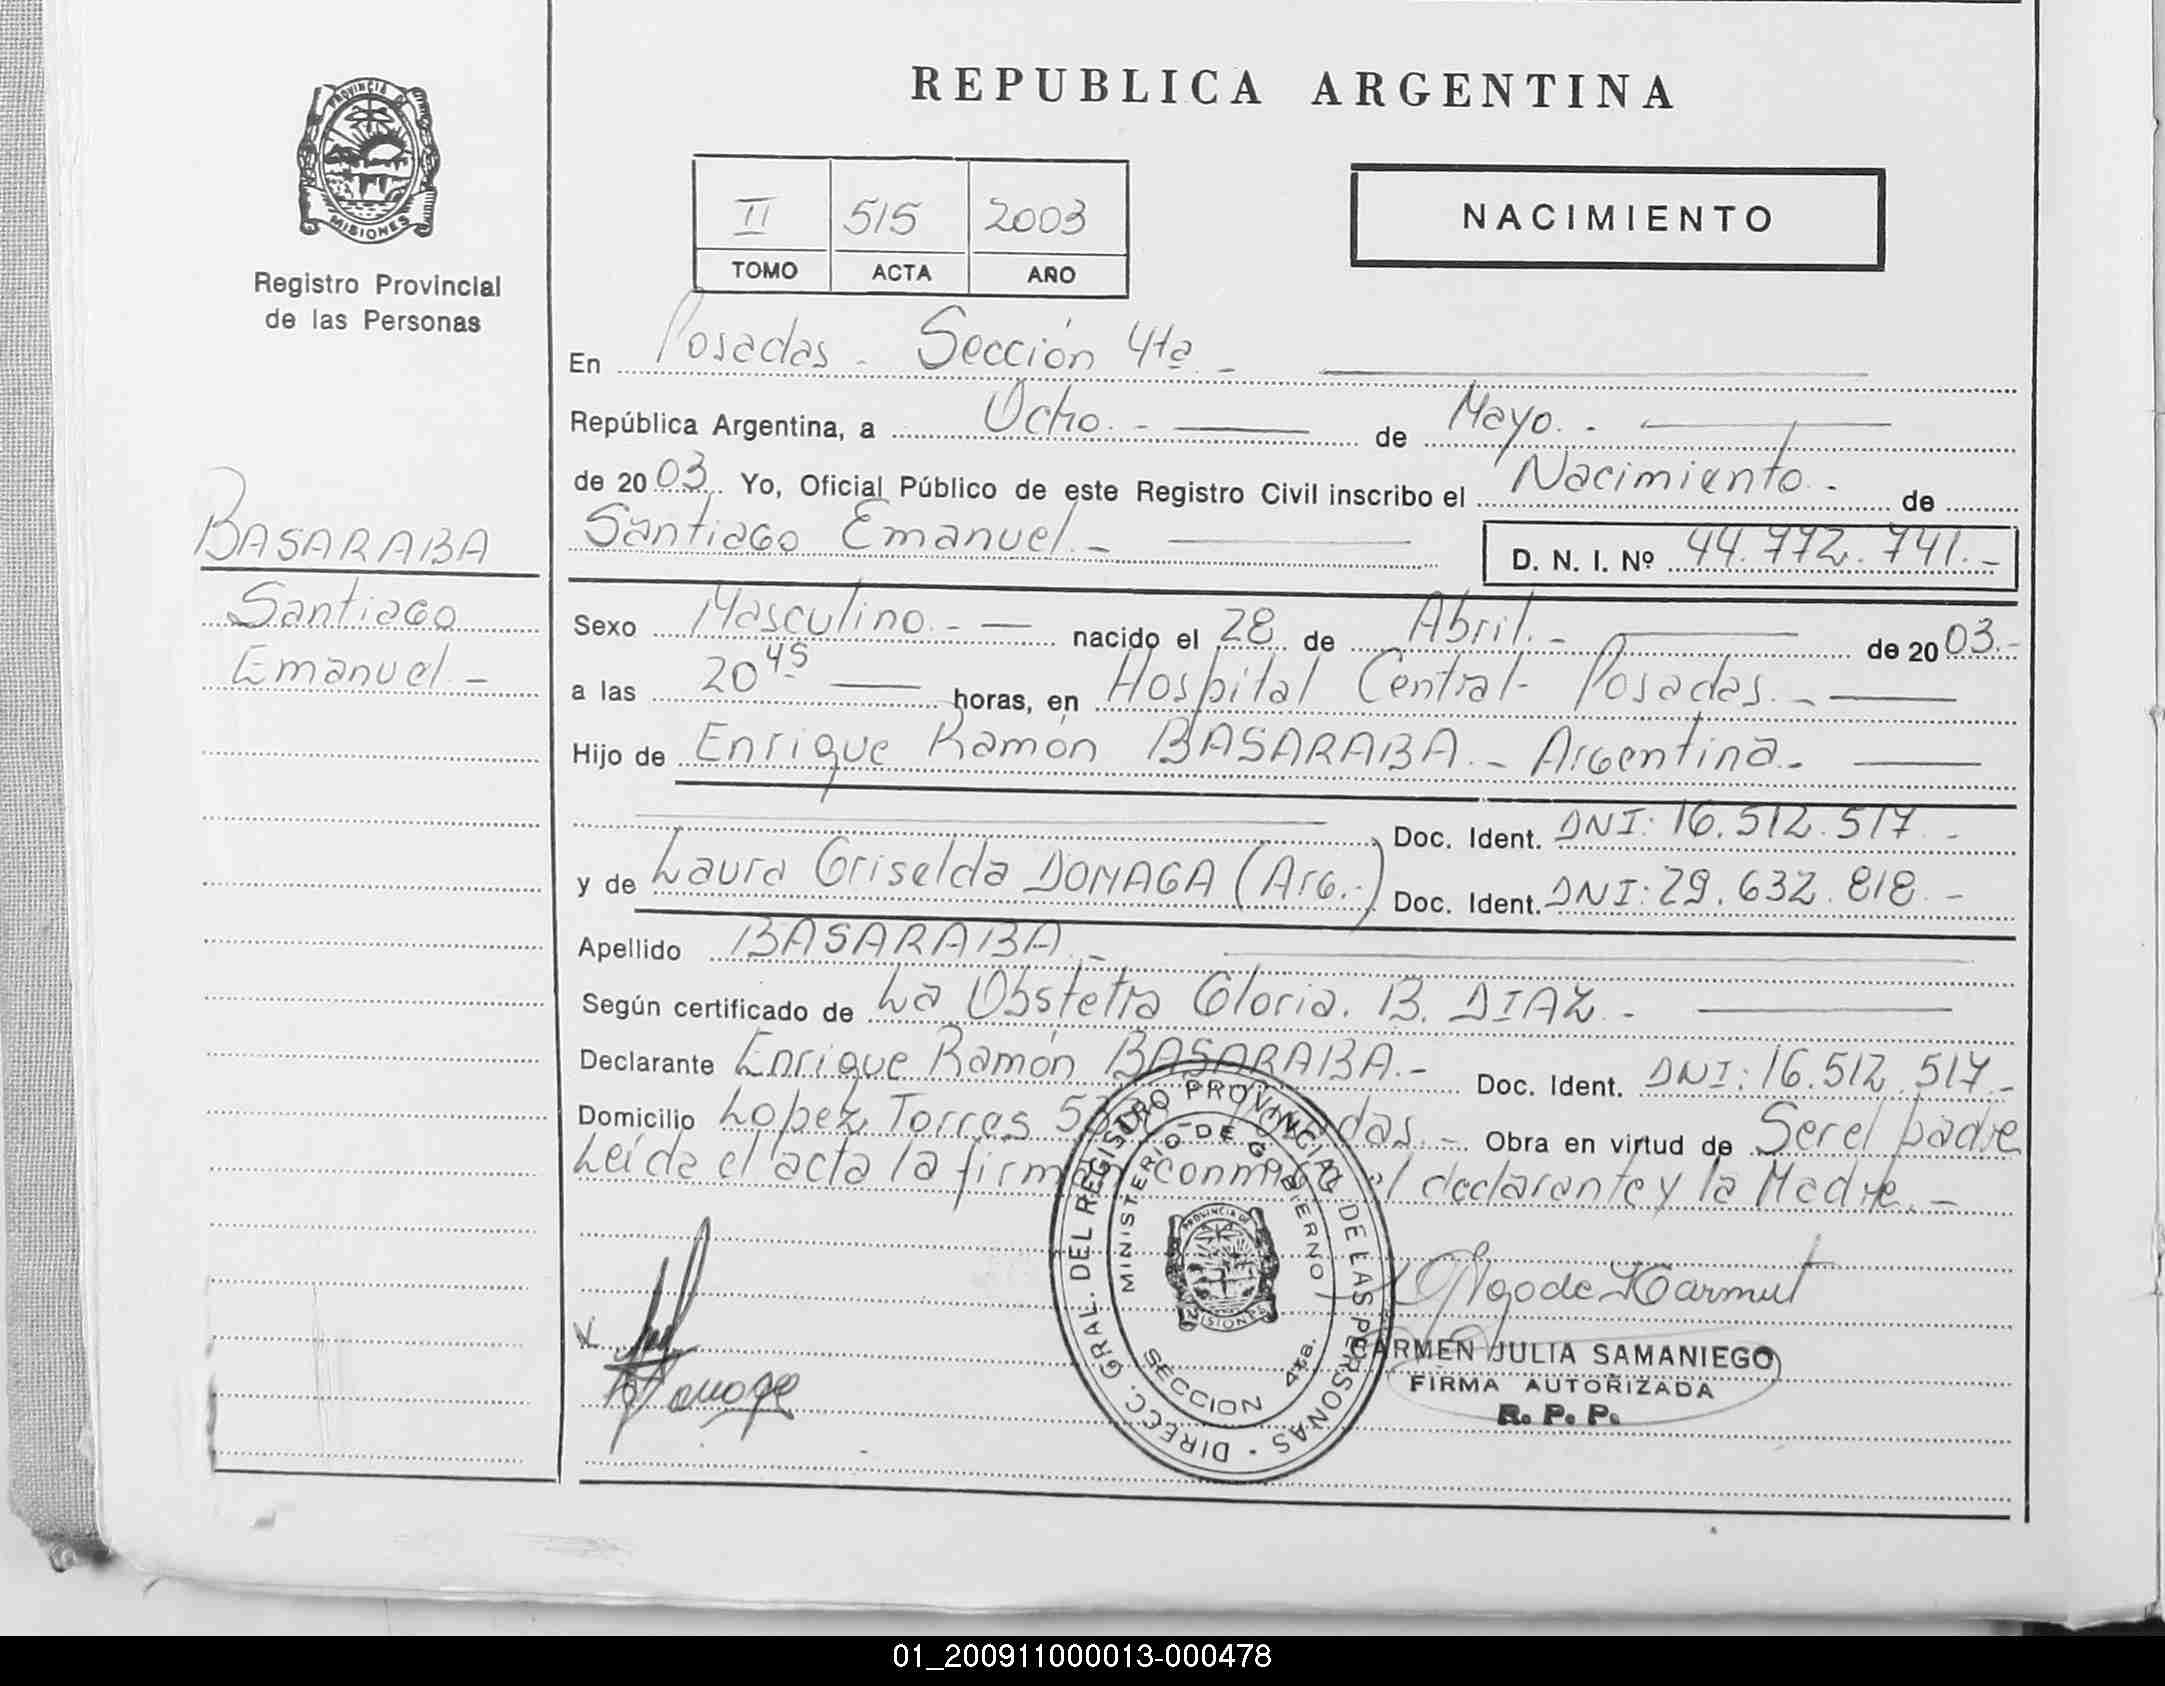 REPUBLICA ARGENTINA
PROVINCIA DE
MISIONES
Registro Provincial
de las Personas
II 515 2003
TOMO ACTA AÑO
NACIMIENTO
En Posadas - Sección 4ta. -
República Argentina, a Ocho. - de Mayo. -
de 2003. Yo, Oficial Público de este Registro Civil inscribo el Nacimiento. - de
Santiago Emanuel. - D. N. I. Nº 44.772.741. -
BASARABA
Santiago
Emanuel. -
Sexo Masculino. - nacido el 28 de Abril. - de 2003. -
a las 20 45 horas, en Hospital Central - Posadas. -
Hijo de Enrique Ramón BASARABA. - Argentina. -
Doc. Ident. DNI: 16.512.517. -
y de Laura Griselda DOMAGA (Arg. -) Doc. Ident. DNI: 29.632.818. -
Apellido BASARABA. -
Según certificado de La Obstetra Gloria. B. DIAZ. -
Declarante Enrique Ramón BASARABA. - Doc. Ident. DNI: 16.512.517. -
Domicilio Lopez Torres Posadas. - Obra en virtud de Ser el padre
Leída el acta la firman conmigo el declarante y la Madre. -
DIRECC. GRAL. DEL REGISTRO PROVINCIAL DE LAS PERSONAS
MINISTERIO DE GOBIERNO
PROVINCIA DE
MISIONES
SECCION 4ta.
CARMEN JULIA SAMANIEGO
FIRMA AUTORIZADA
R. P. P.
01_200911000013-000478